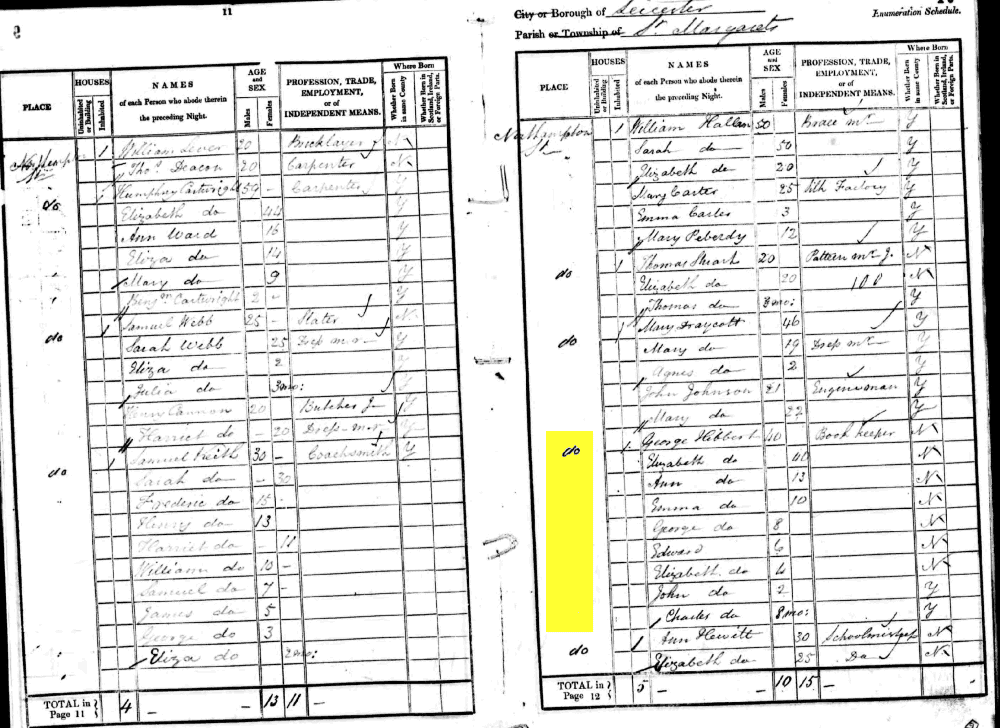 11
HOUSES
AGE and SEX
Where Born
PLACE
Uninhabited or Building
Inhabited
NAMES
of each Person who abode therein
the preceding Night.
Males
Females
PROFESSION, TRADE,
EMPLOYMENT,
or of
INDEPENDENT MEANS.
Whether Born in same County
Whether Born in Scotland, Ireland, or Foreign Parts.
1 William Lever 20 Bricklayer J N
Thos. Deacon 20 Carpenter N
1 Humphry Cartwright 54 - Carpenter Y
do
Elizabeth do 44 Y
Ann Ward 16 Y
Eliza do 14 Y
Mary do 9 Y
Benjn. Cartwright 2 - Y
do 1 Samuel Webb 25 - Slater N
Sarah Webb 25 Dress mr Y
Eliza do 2 Y
Julia do 3 mo: Y
Cannon 20 Butcher J Y
Harriet do - 20 Dress-mr Y
do 1 Samuel Keith 30 - Coachsmith Y
Sarah do - 30
Frederic do 15 -
Henry do 13
Harriet do - 11
William do 10 -
Samuel do 7 -
James do 5
George do 3
Eliza do 2 mo:
TOTAL in Page 11 4 - 13 11 -
City or Borough of Leicester
Enumeration Schedule.
Parish or Township of St. Margarets
HOUSES
AGE and SEX
Where Born
PLACE
Uninhabited or Building
Inhabited
NAMES
of each Person who abode therein
the preceding Night.
Males
Females
PROFESSION, TRADE,
EMPLOYMENT,
or of
INDEPENDENT MEANS.
Whether Born in same County
Whether Born in Scotland, Ireland, or Foreign Parts.
Northampton St. 1 William Hallan 50 Brace mr Y
Sarah do 50 Y
Elizabeth do 20 Y
Mary Carter 25 Factory Y
Emma Carter 3 Y
Mary Peberdy 12 Y
do 1 Thomas 20 Pattern mr J. N
Elizabeth do 20 N
Thomas do 3 mo: Y
do 1 Mary Draycott 46 Y
Mary do 19 Dress mr Y
Agnes do 2 Y
John Johnson 21 Engineman Y
Mary do 22 Y
do 1 George Hibbert 40 Book keeper N
Elizabeth do 40 N
Ann do 13 N
Emma do 10 N
George do 8 N
Edward 6 N
Elizabeth do 4 N
John do 2 Y
Charles do 8 mo: Y
do 1 Ann Hewitt 30 Schoolmistress N
Elizabeth do 25 Do N
TOTAL in Page 12 5 - 10 15 -